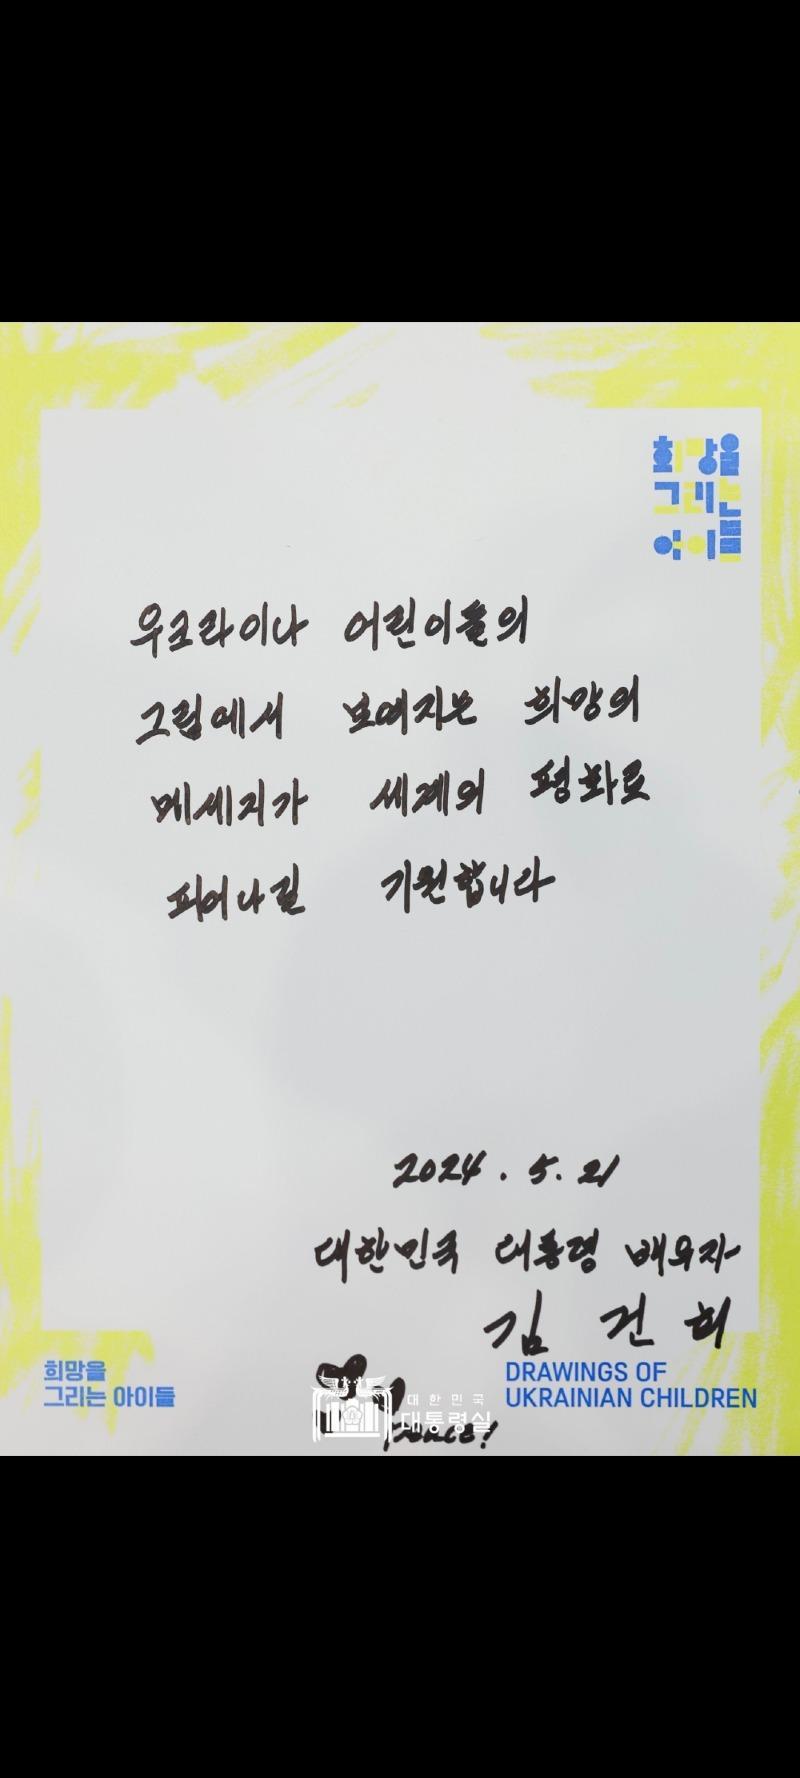 희망을
그리는
아이들
우크라이나 어린이들의
그림에서 보여지는 희망의
메세지가 세계의 평화로
피어나길 기원합니다
2024. 5. 21
대한민국 대통령 배우자
김 건 희
희망을
그리는 아이들
대한민국
대통령실
Peace!
DRAWINGS OF
UKRAINIAN CHILDREN